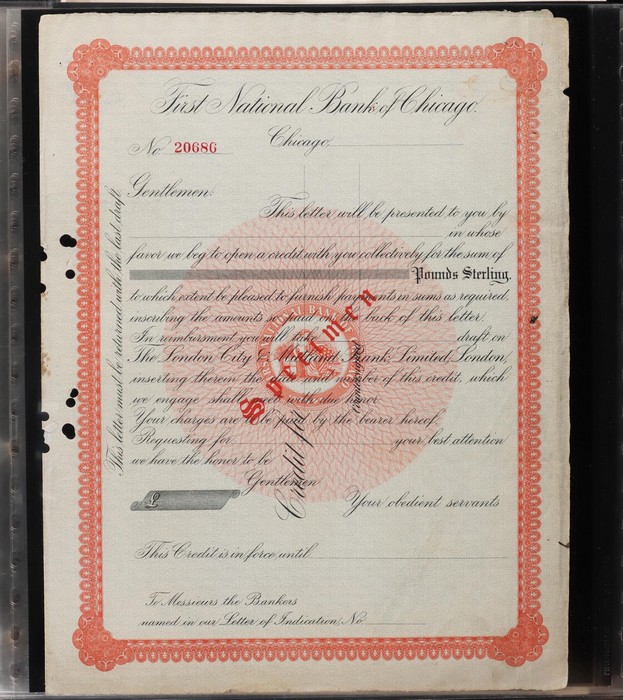 First National Bank of Chicago.
No. 20686
Chicago,
Gentlemen:
This letter will be presented to you by
in whose
favor we beg to open a credit with you collectively for the sum of
Pounds Sterling,
to which extent be pleased to furnish payments in sums as required,
inscribing the amounts so paid on the back of this letter.
In reimbursment you will take draft on
The London City & Midland Bank, Limited, London,
inserting therein the date and number of this credit, which
we engage shall meet with due honor.
Your charges are to be paid by the bearer hereof.
Requesting for your best attention
we have the honor to be
Gentlemen
Your obedient servants
£
This Credit is in force until
To Messieurs the Bankers
named in our Letter of Indication, No.
This letter must be returned with the last draft.
Specimen
Credit for